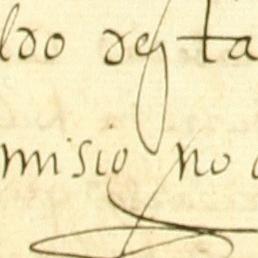 ldo desta
misio no